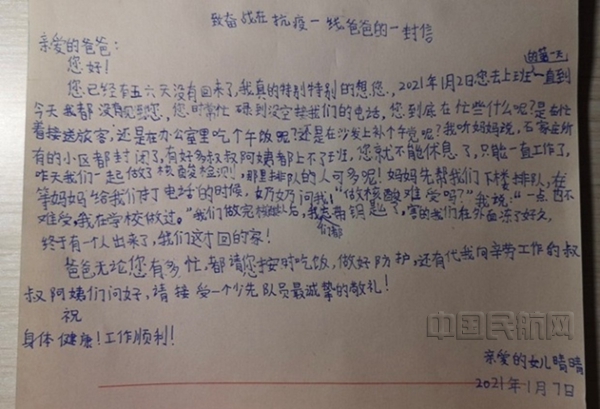 致奋战在抗疫一线爸爸的一封信
亲爱的爸爸：
您好！
的第一天
您已经有五六天没有回来了，我真的特别特别的想您.，2021年1月2日您去上班一直到
今天我都没有见到您，您时常忙碌到没空接我们的电话，您到底在忙些什么呢？是在忙
着接送旅客，还是在办公室里吃个午饭呢？还是在沙发上补个午觉呢？我听妈妈说，石家庄所
有的小区都封闭了，有好多叔叔阿姨都上不了班，您就不能休息了，只能一直工作了，
昨天我们一起做了核酸检测！哪里排队的人可多呢！妈妈先帮我们下楼排队，在
等妈妈给我们打了电话的时候，奶奶问我："做核酸难受吗？"我说："一点也不
难受，我在学校做过。"我们做完核酸后，我忘带钥匙了，害的我们在外面冻了好久，
终于有一个人出来了，我们这才回的家！
爸爸无论您有多忙，都请您按时吃饭，做好防护，还有代我向辛劳工作的叔
叔阿姨们问好，请接受一个少先队员最诚挚的敬礼！
祝
身体健康！工作顺利！
亲爱的女儿晴晴
2021年1月7日
中国民航网